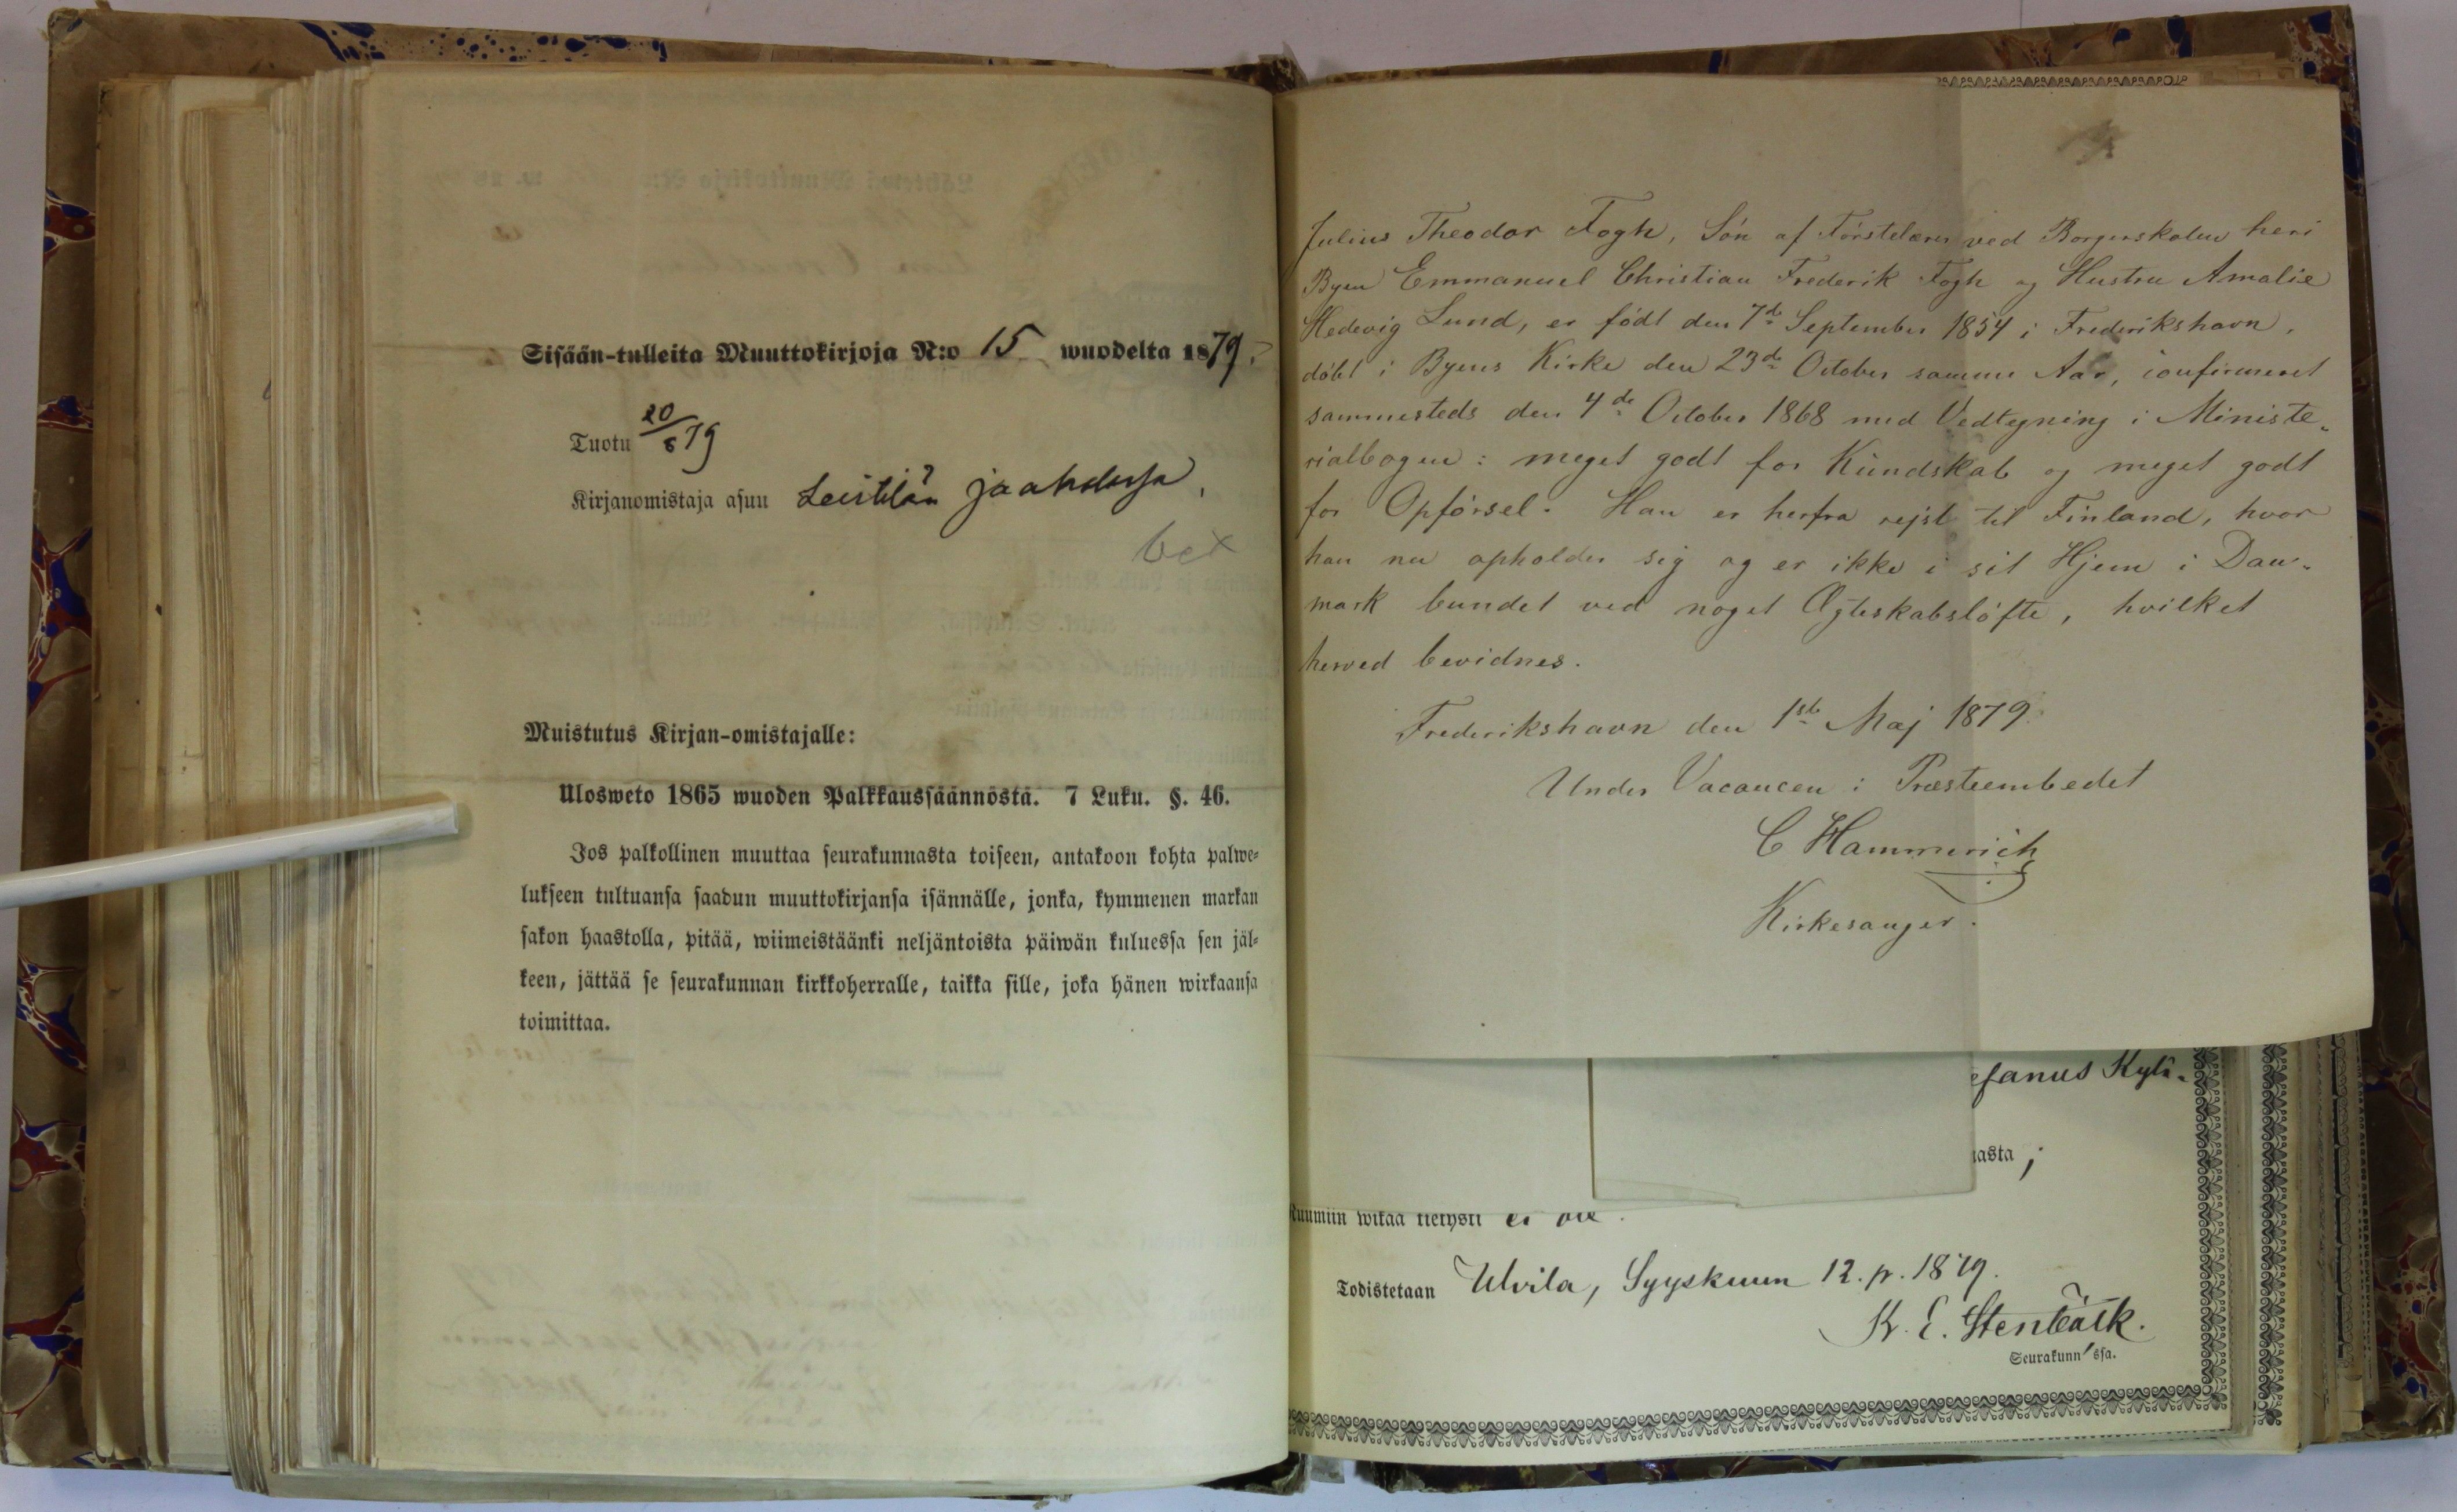 Sisään-tulleita Muuttokirjoja N:o 15 wuodelta 1879.
Tuotu 20/8 79
Kirjanomistaja asuu Leistilän
bet
Muistutus Kirjan-omistajalle:
Ulosweto 1865 wuoden Palkkaussäännöstä. 7 Luku. §. 46.
Jos palkollinen muuttaa seurakunnasta toiseen, antakoon kohta palwe-
lukseen tultuansa saadun muuttokirjansa isännälle, jonka, kymmenen markan
sakon haastolla, pitää, wiimeistäänki neljäntoista päiwän kuluessa sen jäl-
keen, jättää se seurakunnan kirkkoherralle, taikka sille, joka hänen wirkaansa
toimittaa.
Julius Theodor Fogh, Sön af Förstelærer ved Borgerskolen her i
Byen Emmanuel Christian Frederik Fogh og Hustru Amalie
Hedevig Lund, er födt den 7de September 1854 i Frederikshavn,
döbt i Byens Kirke den 23de October samme Aar, confirmeret
sammesteds den 4de October 1868 med Vedtegning i Ministe-
rialbogen: meget godt for Kundskab og meget godt
for Opförsel. Han er herfra rejst til Finland, hvor
han nu opholder sig og er ikke i sit Hjem i Dan-
mark bundet ved noget Ægteskabslöfte, hvilket
herved bevidnes.
Frederikshavn den 1ste Maj 1879.
Under Vacancen i Præsteembedet
C Hammerich
Kirkesanger.
efanus Kylä-
nasta;
Ruumiin wikaa tietysti ei ole.
Todistetaan Ulvila, Syyskuun 12. p. 1879.
K. E. Stenbäck.
Seurakunn'ssa.